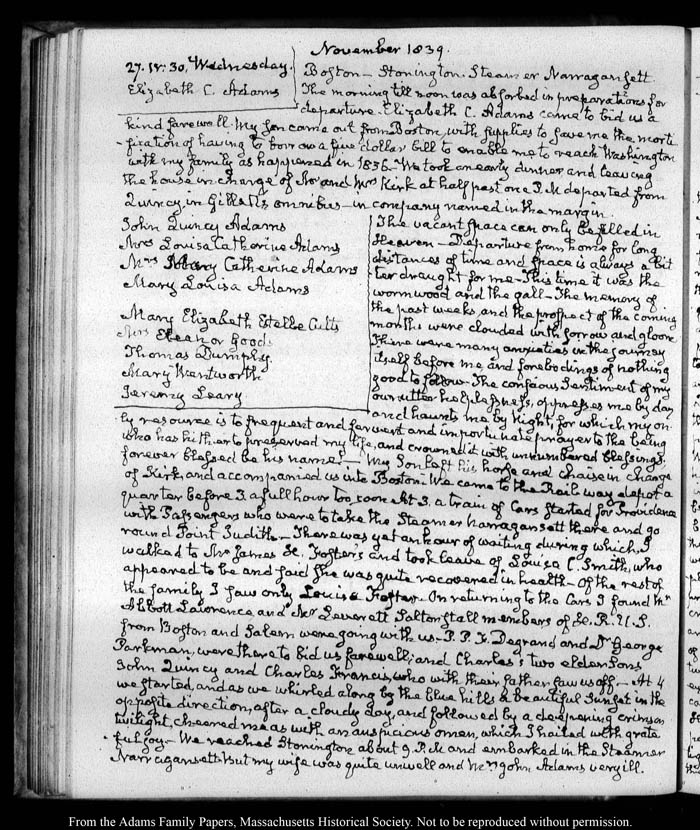 November 1839.
27. IV:30. Wednesday.
Elizabeth C. Adams
Boston — Stonington. Steamer Narragansett.
The morning till noon was absorbed in preparations for
departure. Elizabeth C. Adams came to bid us a
kind farewell. My Son came out from Boston, with supplies to save me the morti
-fication of having to borrow a five dollar bill to enable me to reach Washington
with my family as happened in 1836. We took an early dinner and leaving
the house in charge of Mr and Mrs Kirk at half past one P.M. departed from
Quincy in Gillett's omnibus — in company named in the margin.
John Quincy Adams
Mrs Louisa Catherine Adams
Mrs Mary Catherine Adams
Mary Louisa Adams
Mary Elizabeth Estelle Cutts
Mrs Eleanor Goods
Thomas Dumphy
Mary Wentworth
Jeremy Leary
The vacant space can only be filled in
Heaven — Departure from home for long
distances of time and space is always a bit
ter draught for me — This time it was the
wormwood and the gall — The memory of
the past weeks, and the prospect of the coming
months were clouded with sorrow and gloom
There were many anxieties in the journey
itself before me and forebodings of nothing
good to follow — The conscious sentiment of my
own utter helplessness, oppresses me by day
and haunts me by Night, for which my on
ly resource is to frequent and fervent and importunate prayer to the being
who has hitherto preserved my life, and crowned it with unnumbered blessings.
forever blessed be his name! — My Son left his horse and chaise in charge
of Kirk and accompanied us into Boston. We came to the Rail way depot a
quarter before 3. a full hour too soon At 3. a train of Cars started for Providence
with Passengers who were to take the Steamer Narragansett there and go
round Point Judith — There was yet an hour of waiting during which, I
walked to Mr James H. Foster's and took leave of Louisa C. Smith, who
appeared to be and said she was quite recovered in health — Of the rest of
the family I saw only Louisa Foster. On returning to the Cars I found Mr
Abbott Lawrence, and Mr Leverett Saltonstall members of H.R.U.S.
from Boston and Salem were going with us. P. P. F. Degrand and Dr George
Parkman, were there to bid us farewell; and Charles's two elder Sons
John Quincy and Charles Francis, who with their father saw us off. — At 4
we started, and as we whirled along by the blue hills a beautiful Sunset in the
opposite direction, after a cloudy day, and followed by a deepening crimson
twilight, cheered me as with an auspicious omen, which I hailed with grate
ful joy — We reached Stonington about 9. P.M. and embarked in the Steamer
Narragansett. But my wife was quite unwell and Mrs John Adams very ill.
From the Adams Family Papers, Massachusetts Historical Society. Not to be reproduced without permission.